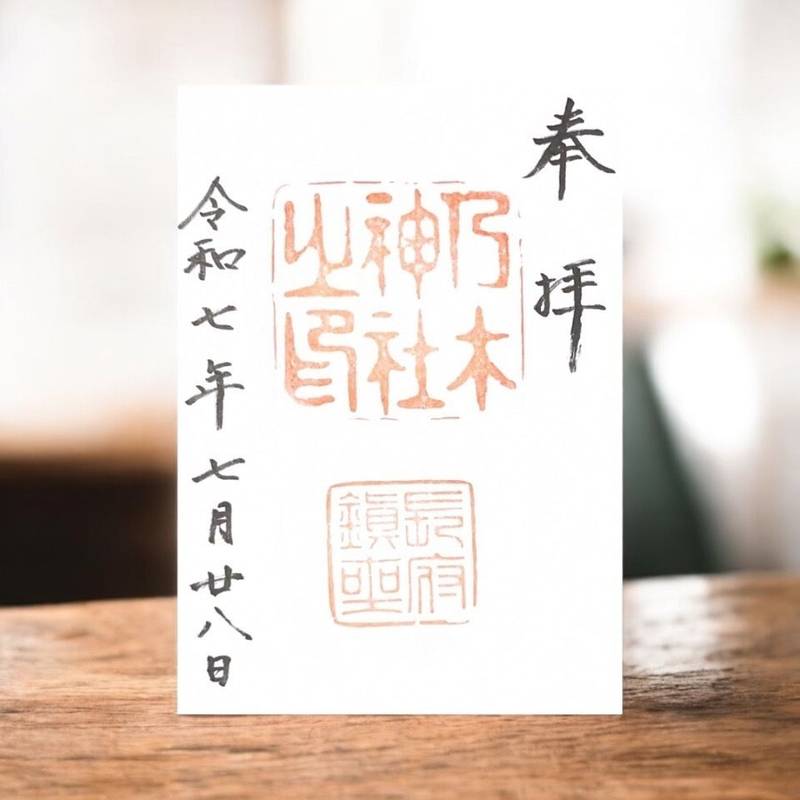 奉拝
乃木
神社
之印
長府
鎮坐
令和七年七月廿八日